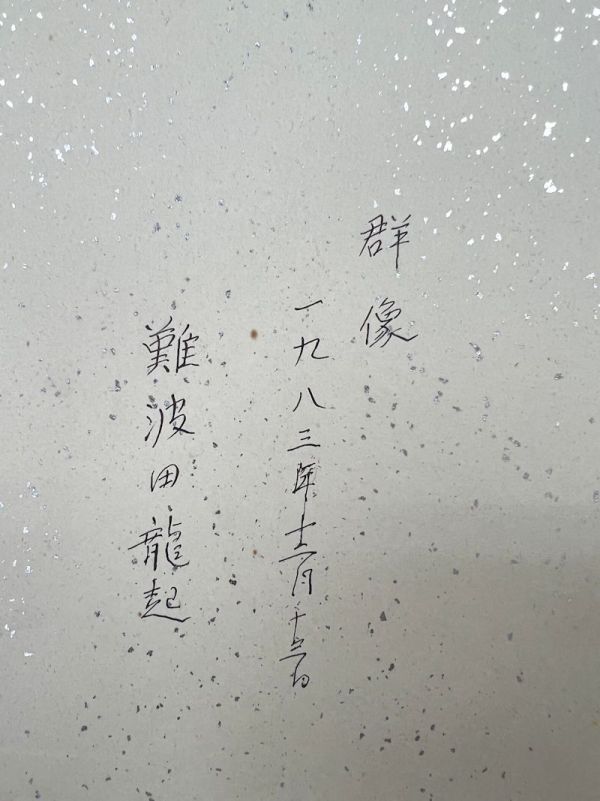 群像
一九八三年十二月十三日
難波田龍起